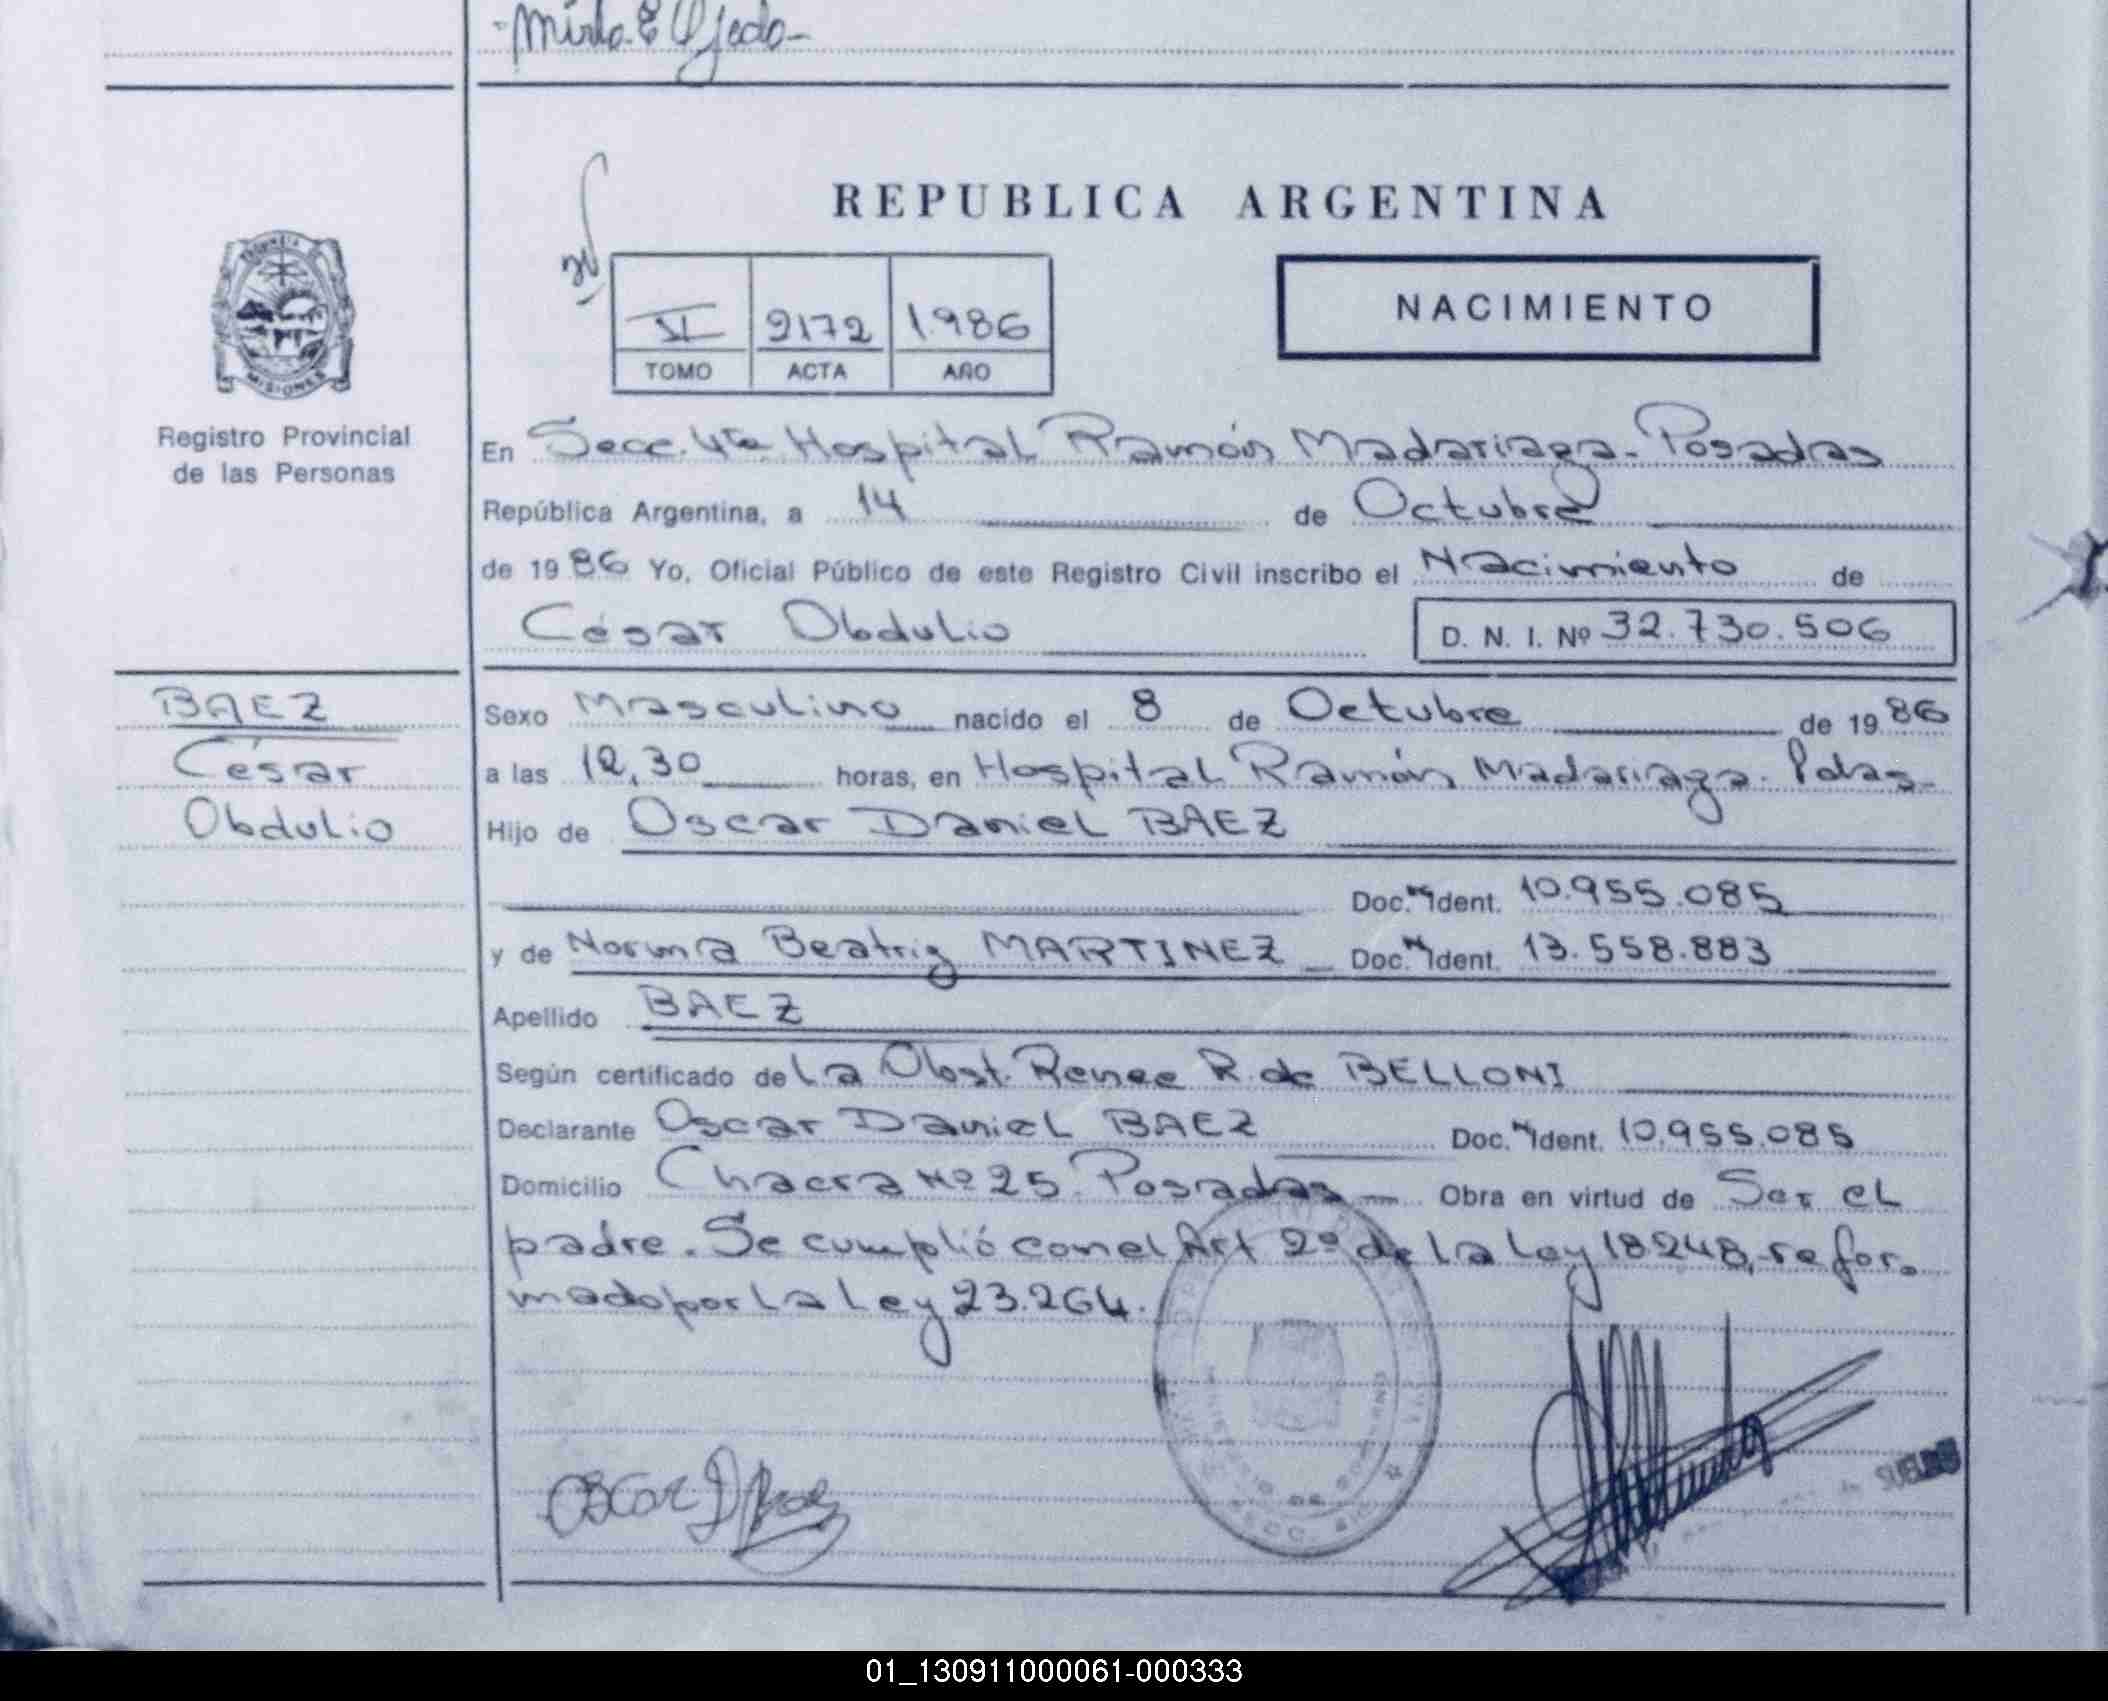 -Mirta E Ojeda-
REPUBLICA ARGENTINA
PROVINCIA
MISIONES
Registro Provincial
de las Personas
VI 2172 1.986
TOMO ACTA AÑO
NACIMIENTO
En Secc. 4ta Hospital Ramón Madariaga - Posadas
República Argentina, a 14 de Octubre
de 1986 Yo, Oficial Público de este Registro Civil inscribo el Nacimiento de
César Obdulio D. N. I. Nº 32.730.506
BAEZ
César
Obdulio
Sexo Masculino nacido el 8 de Octubre de 1986
a las 12,30 horas, en Hospital Ramón Madariaga. Pdas-
Hijo de Oscar Daniel BAEZ
Doc. Ident. 10.955.085
y de Norma Beatriz MARTINEZ Doc. Ident. 13.558.883
Apellido BAEZ
Según certificado de la Obst. Renee R. de BELLONI
Declarante Oscar Daniel BAEZ Doc. Ident. 10.955.085
Domicilio Chacra Nº 25 Posadas Obra en virtud de Ser el
padre. Se cumplió con el Art 2º de la Ley 18248, refor-
mado por la Ley 23.264.
Oscar D Baez
01_130911000061-000333